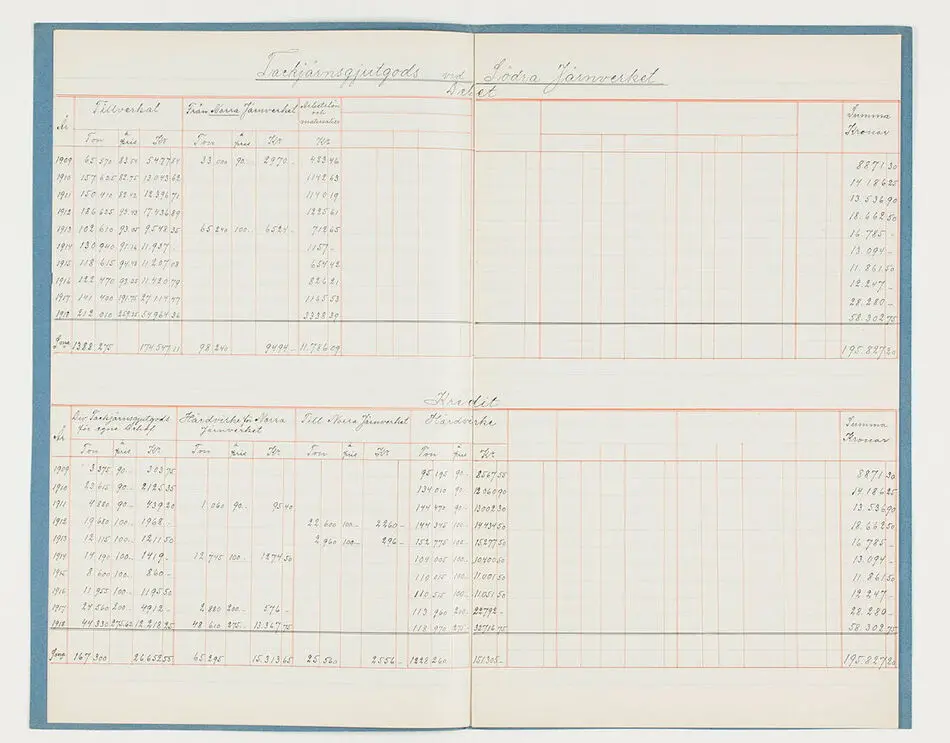 Tackjärnsgjutgods vid Södra Järnverket
Debet
År Tillverkat Från Norra Järnverket Arbetslön och materialier Summa Kronor
Ton à pris Kr Ton à pris Kr Kr
1909 65 570 83.54 5477 84 33 000 90.- 2970.- 423 46 8871.30
1910 157 625 82.75 13.043 62 1142 63 14.186.25
1911 150 410 82.42 12.396 71 1140 19 13.536.90
1912 186 625 93.43 17.436 89 1225 61 18.662.50
1913 102 610 93.05 9.548.35 65 240 100.- 6524.- 712 65 16.785.-
1914 130 940 91.16 11.937.- 1157.- 13.094.-
1915 118 615 94.48 11.207 08 654.42 11.861.50
1916 122 470 11.420 79 826 21 12.247.-
1917 141 400 191.75 27.114.47 1165 53 28.280.-
1918 212 010 259.25 54.964 36 3338.39 58.302.75
Sma 1388 275 174.547.11 98 240 9494.- 11.786.09 195.827.20
Kredit
År Div. Tackjärnsgjutgods för egne behof Hårdvirke för Norra Järnverket Till Norra Järnverket Hårdvirke Summa Kronor
Ton à pris Kr Ton à pris Kr Ton à pris Kr Ton à pris Kr
1909 3 375 90.- 303 75 95 195 90.- 8567.55 8871.30
1910 23 615 90.- 2125.35 134 010 90.- 12.060.90 14.186.25
1911 4 880 90.- 439.20 1 060 90.- 95.40 144 470 90.- 13002.30 13.536.90
1912 19 680 100.- 1968.- 22 600 100.- 2260.- 144 345 100.- 14434.50 18.662.50
1913 12 115 100.- 1211.50 2 960 100.- 296.- 152 775 100.- 15277.50 16.785.-
1914 14 190 100.- 1419.- 12 745 100.- 1274.50 104 005 100.- 10400.50 13.094.-
1915 8 600 100.- 860.- 110 015 100.- 11.001.50 11.861.50
1916 11 955 100.- 1195.50 110 515 100.- 11051.50 12.247.-
1917 24 560 200.- 4912.- 2 880 200.- 576.- 113 960 200.- 22792.- 28.280.-
1918 44 330 275.62 12.218.25 48 610 275.- 13.367.75 118 970 275.- 32716.75 58.302.75
Sma 167 300 26652.55 65 295 15.313.65 25 560 2556.- 1228 260 151305.- 195.827.20